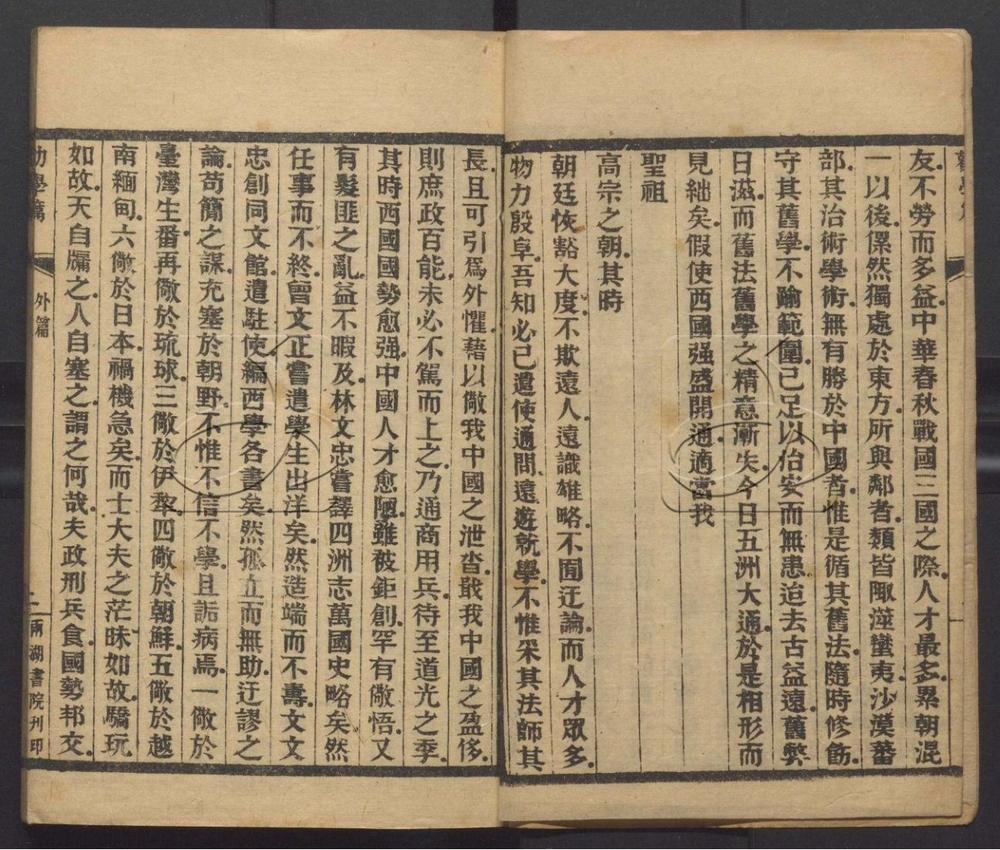 友不勞而多益中華春秋戰國三國之際人才最多累朝混
一以後儽然獨處於東方所與鄰者類皆陬澨蠻夷沙漠蕃
部其治術學術無有勝於中國者惟是循其舊法隨時修飭
守其舊學不踰範圍已足以治安而無患迨去古益遠舊弊
日滋而舊法舊學之精意漸失今日五洲大通於是相形而
見絀矣假使西國强盛開通適當我
聖祖
高宗之朝其時
朝廷恢豁大度不欺遠人遠識雄略不囿迂論而人才眾多
物力殷阜吾知必已遣使通問遠遊就學不惟采其法師其
長且可引爲外懼藉以儆我中國之泄沓戢我中國之盈侈
則庶政百能未必不駕而上之乃通商用兵待至道光之季
其時西國國勢愈强中國人才愈陋雖被鉅創罕有儆悟又
有髮匪之亂益不暇及林文忠嘗譯四洲志萬國史略矣然
任事而不終曾文正嘗遣學生出洋矣然造端而不壽文文
忠創同文館遣駐使編西學各書矣然孤立而無助迂謬之
論苟簡之謀充塞於朝野不惟不信不學且詬病焉一儆於
臺灣生番再儆於琉球三儆於伊犂四儆於朝鮮五儆於越
南緬甸六儆於日本禍機急矣而士大夫之茫昧如故驕玩
如故天自牖之人自塞之謂之何哉夫政刑兵食國勢邦交
勸學篇 外篇 二 兩湖書院刊印